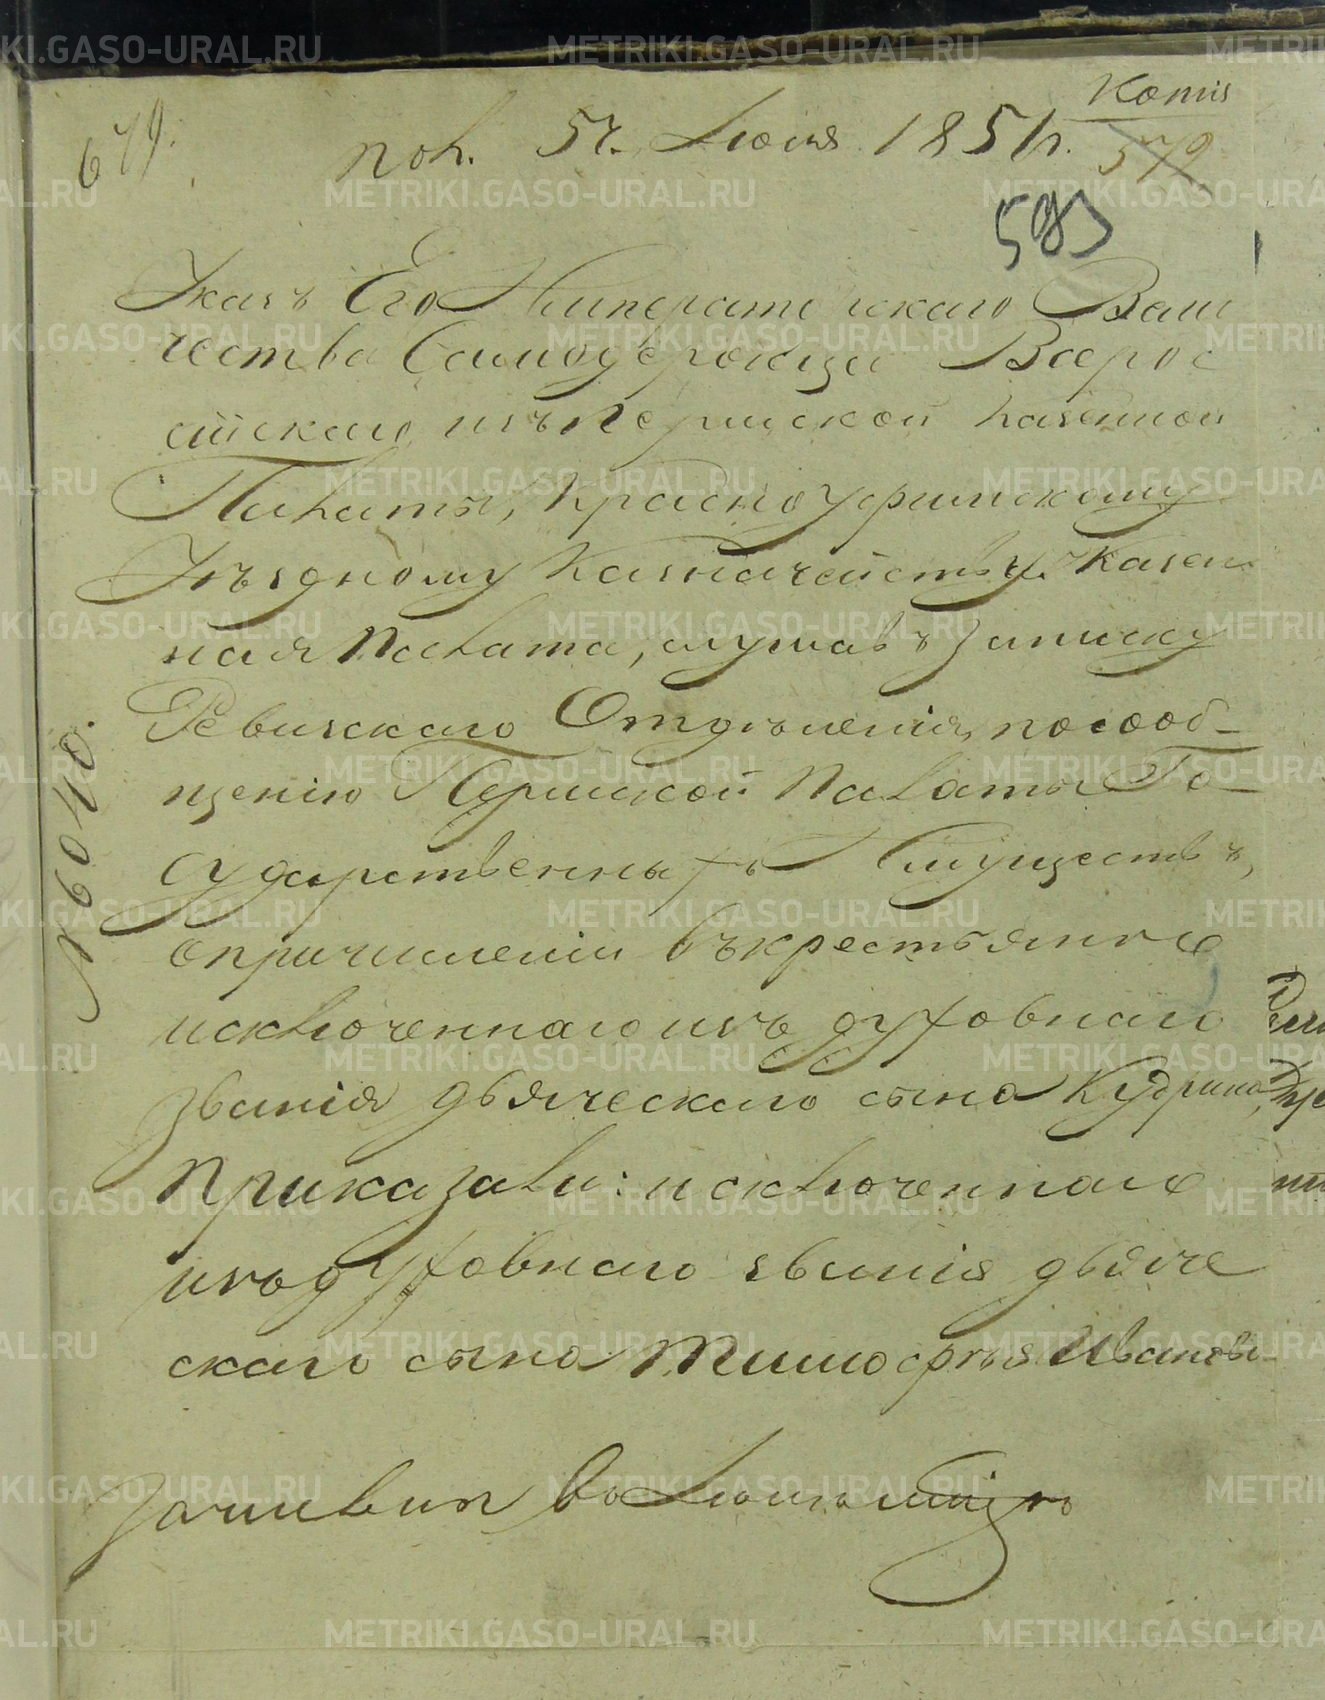 Копія
679.
пол. 5г. Июня 1851 г.
579
593
Указъ Его Императорскаго Вели
чества Самодержца Всерос
сійскаго, изъ Пермской Казенной
Палаты, Красноуфимскому
Уѣздному Казначейству. Казен
ная Палата, слушавъ записку
Ревизскаго Отдѣленія, по сооб-
щенію Пермской Палаты Го-
сударственныхъ Имуществъ,
о причисленіи въ крестьяне
исключеннаго изъ духовнаго
званія дьяческаго сына Кудрина,
Приказали: исключеннаго
изъ духовнаго званія дьяче
скаго сына Тимофея Иванова
№ 6040.
METRIKI.GASO-URAL.RU